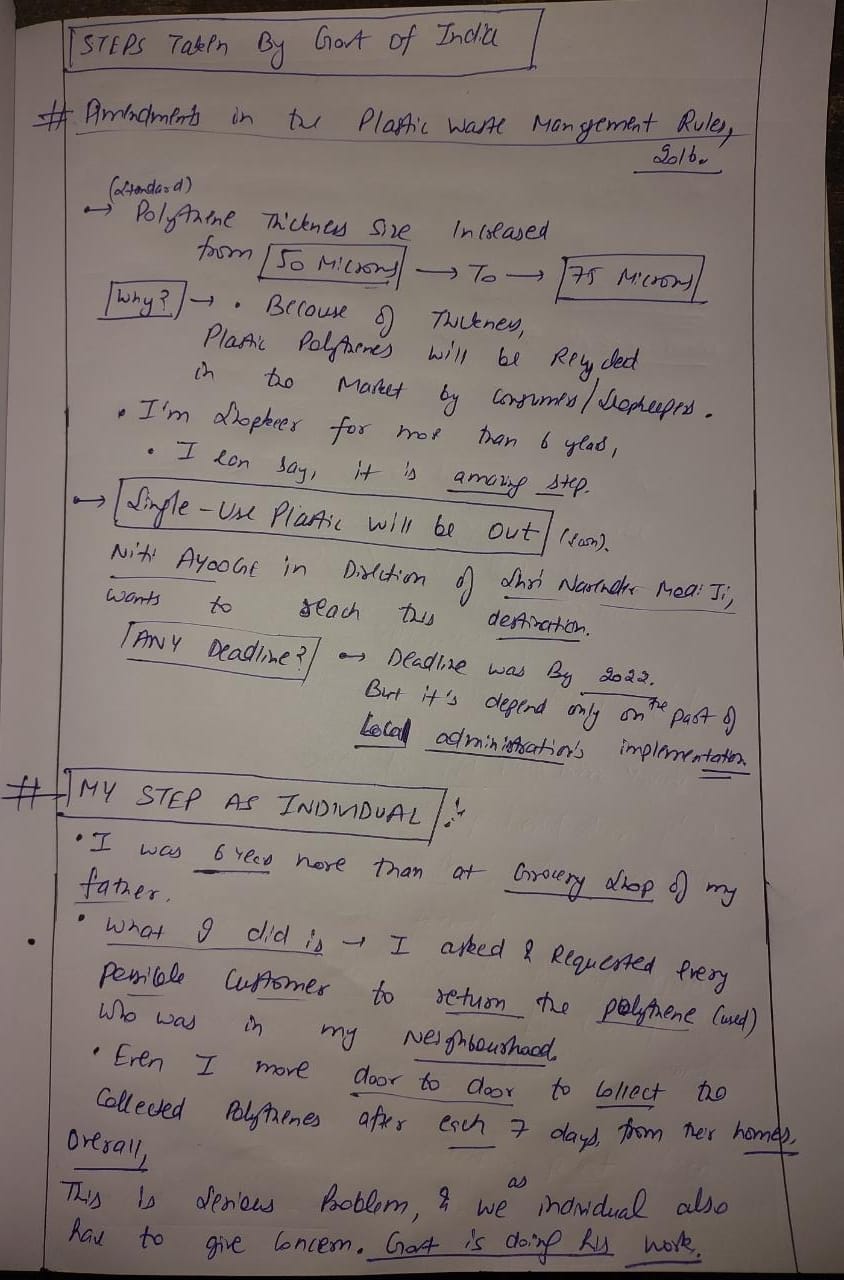 STEPS Taken By Govt of India
# Amendments in the Plastic Waste Mangement Rules,
2016.
(Standard)
→ Polythene Thickness Size Increased
from 50 Microns → To → 75 Microns
Why? → • Because of Thickness,
Plastic Polythenes will be Recycled
in the Market by consumers/Shopkeepers.
• I'm Shopkeer for more than 6 years,
• I can say, it is amazing step.
→ Single-Use Plastic will be out (soon).
Niti Ayooge in Direction of Shri Narender Modi Ji,
wants to reach this destination.
ANY Deadline? → Deadline was By 2022.
But it's depend only on the part of
Local administration's implementation
# MY STEP AS INDIVIDUAL :-
• I was 6 years more than at Grocery Shop of my
father.
• What I did is → I asked & Requested every
possible Customer to return the polythene (used)
who was in my Neighbourhood.
• Even I move door to door to collect the
Collected Polythenes after each 7 days, from their homes.
Overall,
This is serious Problem, & we as individual also
have to give concern. Govt is doing his work.